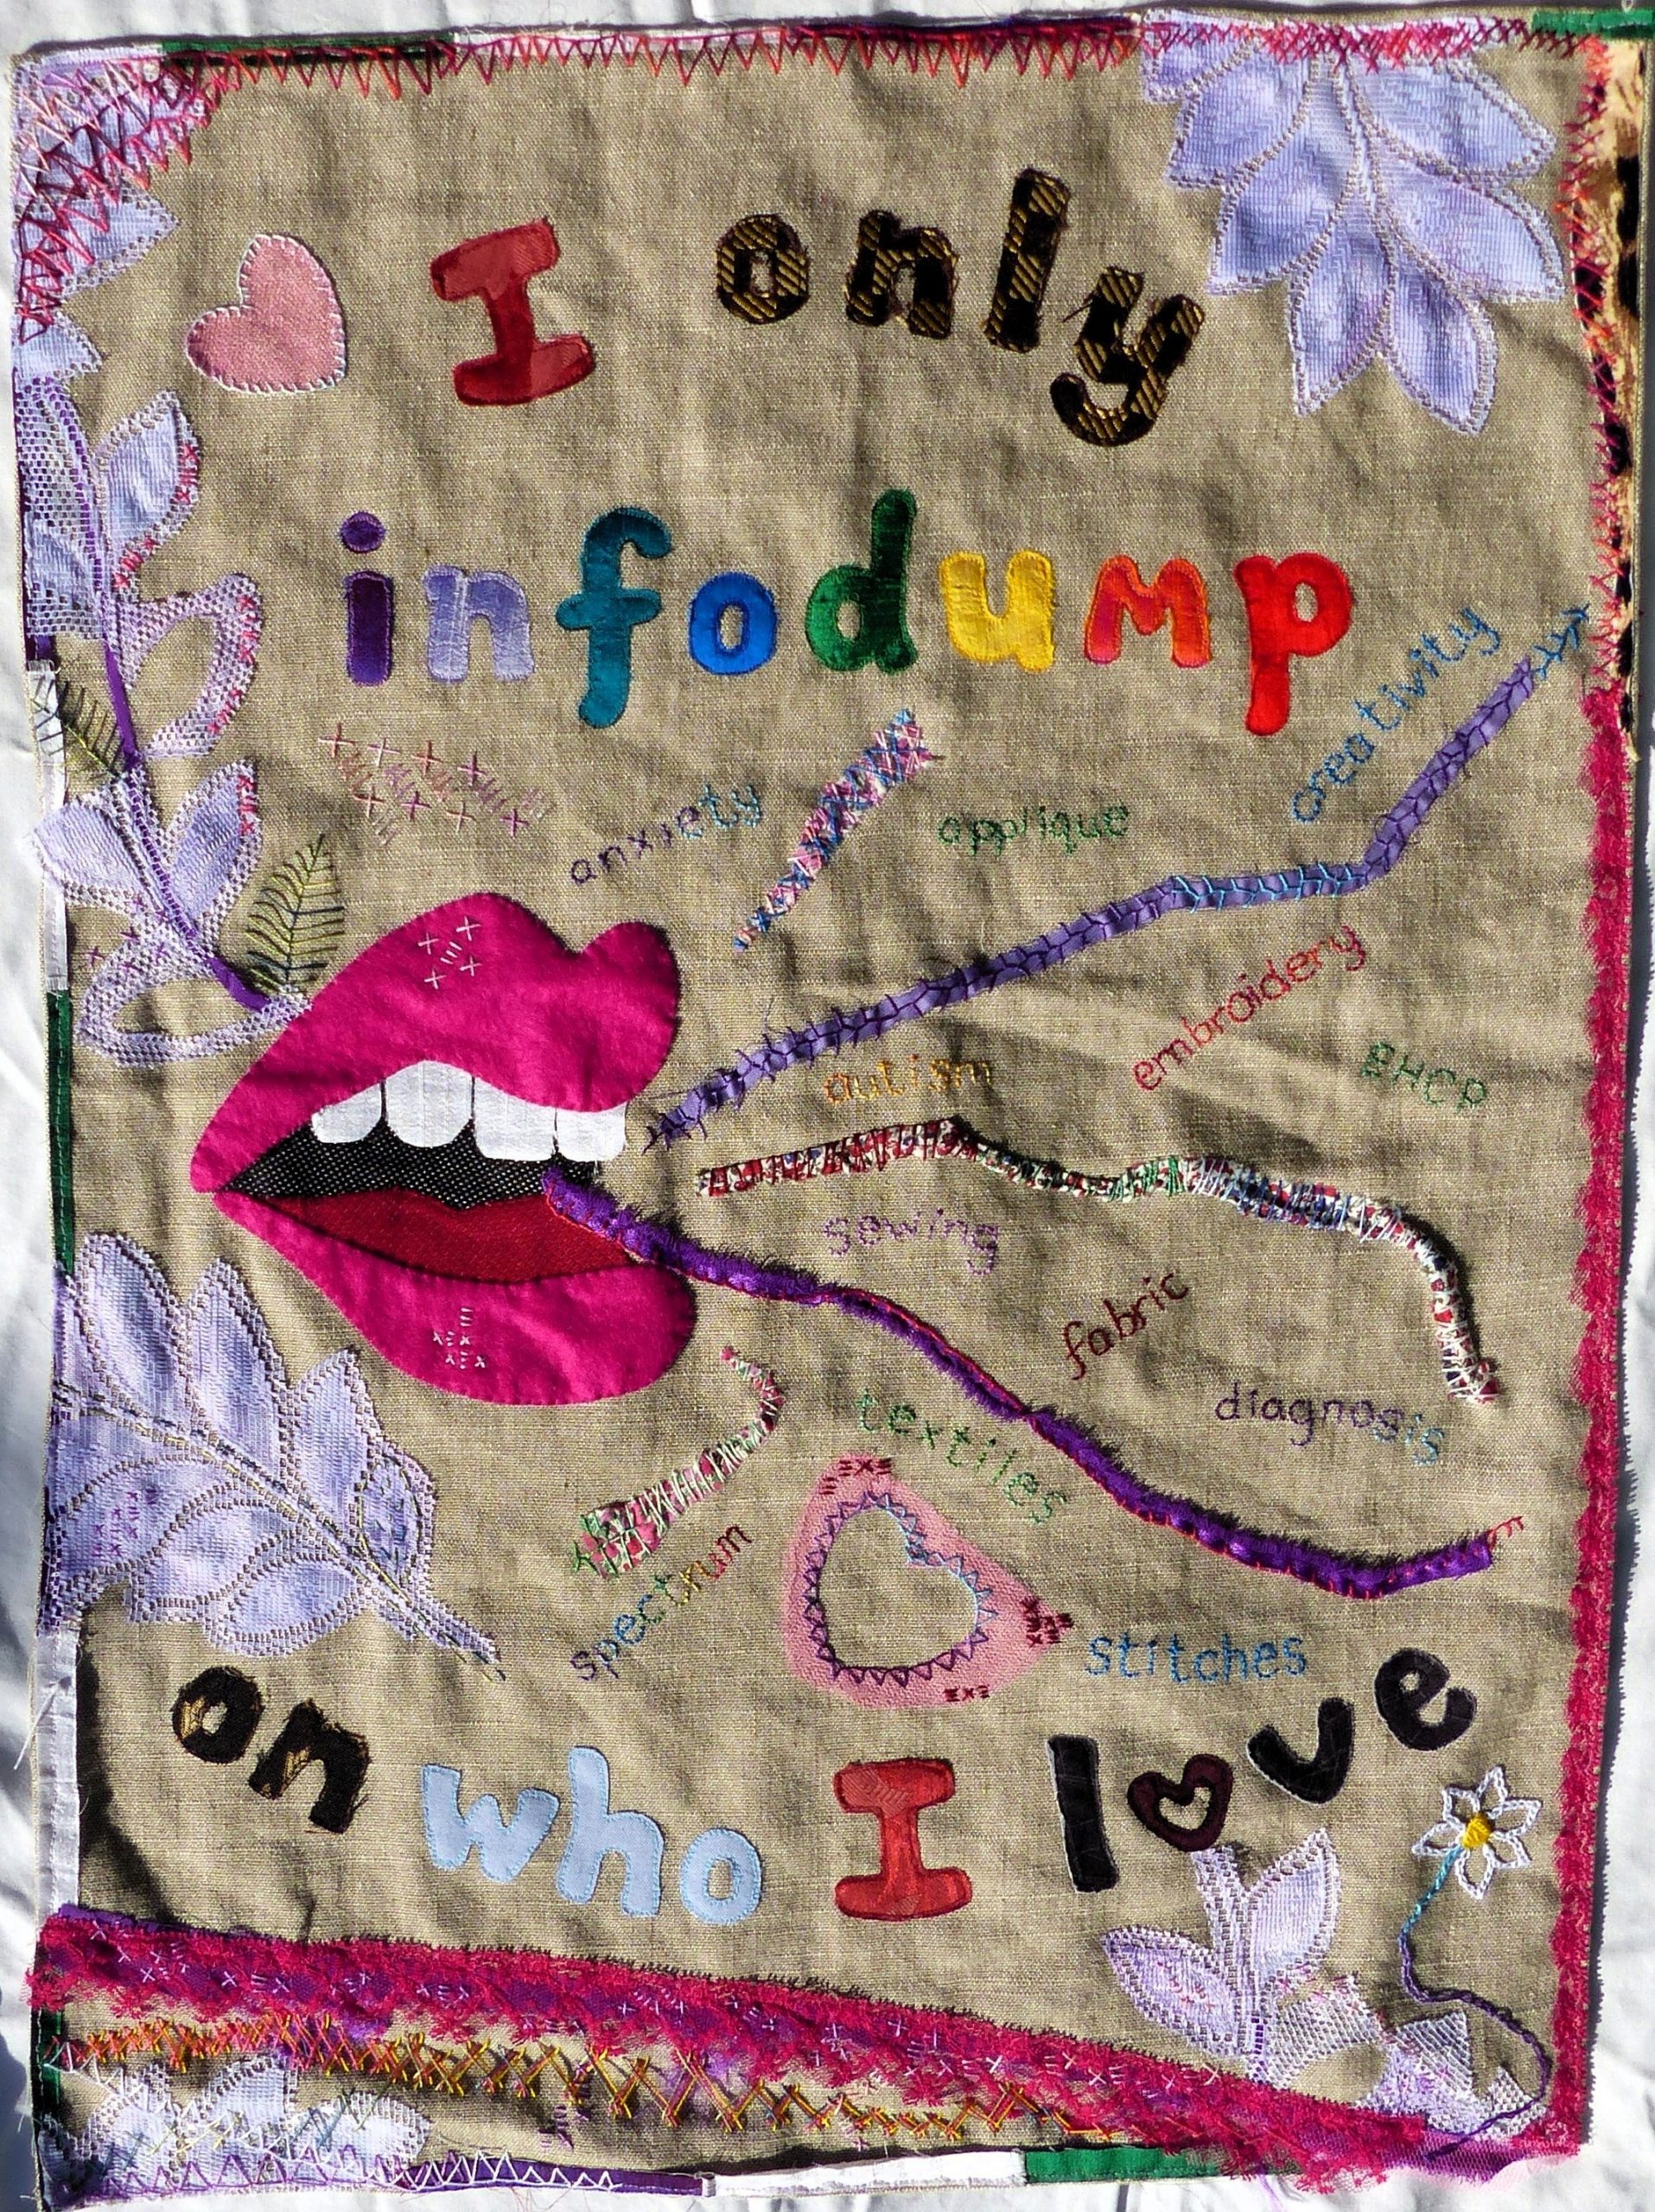 I only
infodump
creativity
anxiety
applique
embroidery
autism
EHCP
sewing
fabric
diagnosis
textiles
spectrum
stitches
on who I love